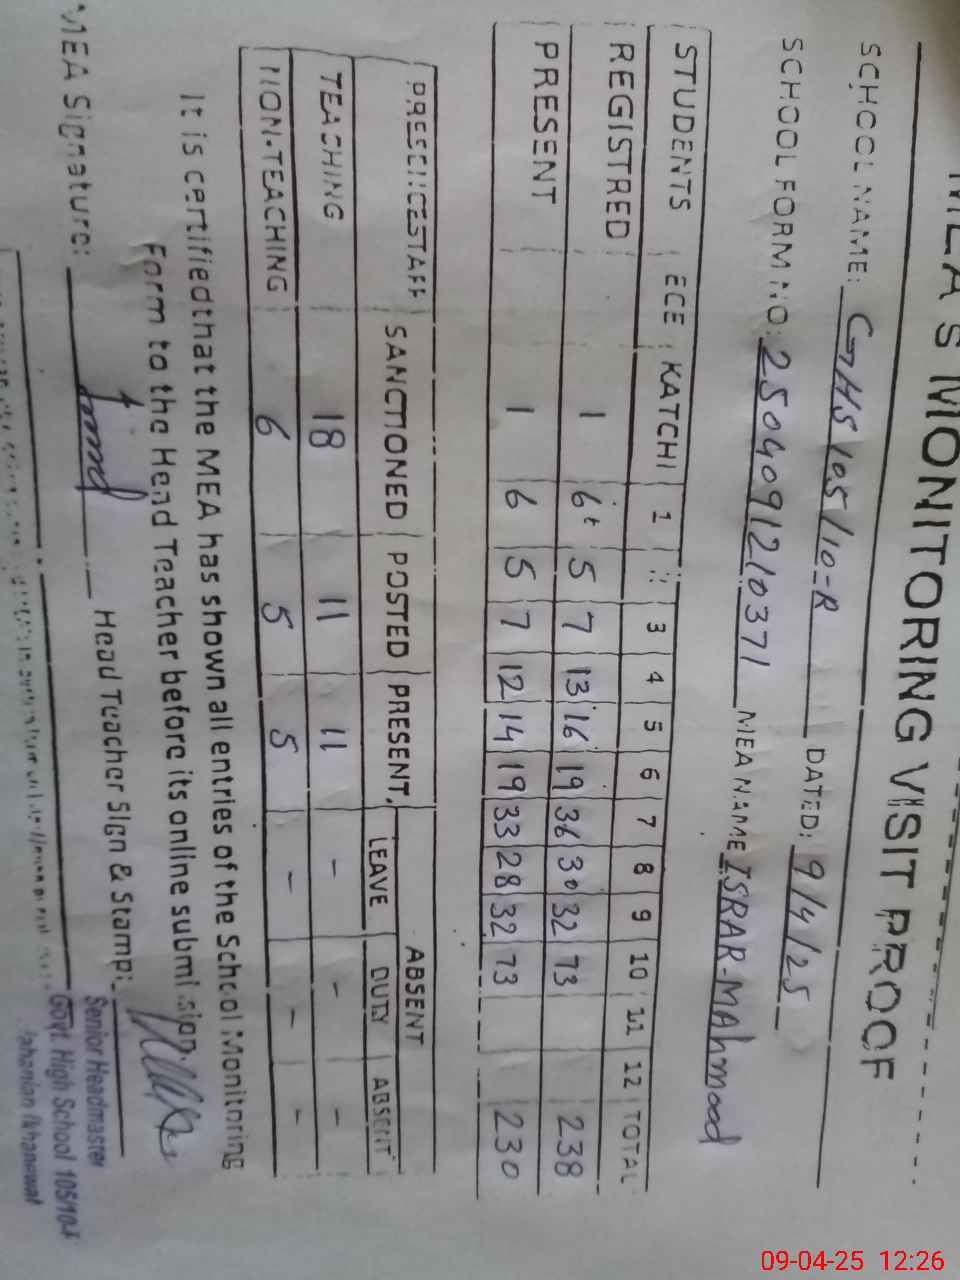 MEA'S MONITORING VISIT PROOF
SCHOOL NAME: GHS 105/10-R DATED: 9/4/25
SCHOOL FORM NO: 2504091210371 MEA NAME ISRAR-MAhmood
STUDENTS ECE KATCHI 1 3 4 5 6 7 8 9 10 11 12 TOTAL
REGISTRED 1 6 5 7 13 16 19 36 30 32 73 238
PRESENT 1 6 5 7 12 14 19 33 28 32 73 230
PRESENCE STAFF SANCTIONED POSTED PRESENT ABSENT
LEAVE DUTY ABSENT
TEACHING 18 11 11 - - -
NON-TEACHING 6 5 5 - - -
It is certified that the MEA has shown all entries of the School Monitoring
Form to the Head Teacher before its online submission.
MEA Signature: Head Teacher Sign & Stamp:
Senior Headmaster
Govt. High School 105/10-R
Jahanian Khanewal
09-04-25 12:26